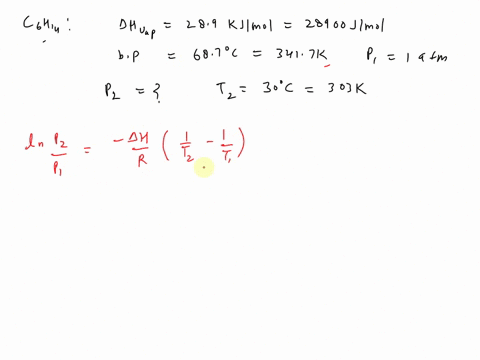 C6H14 : ΔHvap = 28.9 KJ/mol = 28900 J/mol
b.p = 68.7°C = 341.7K P1 = 1 atm
P2 = ? T2 = 30°C = 303K
ln P2/P1 = -ΔH/R ( 1/T2 - 1/T1 )